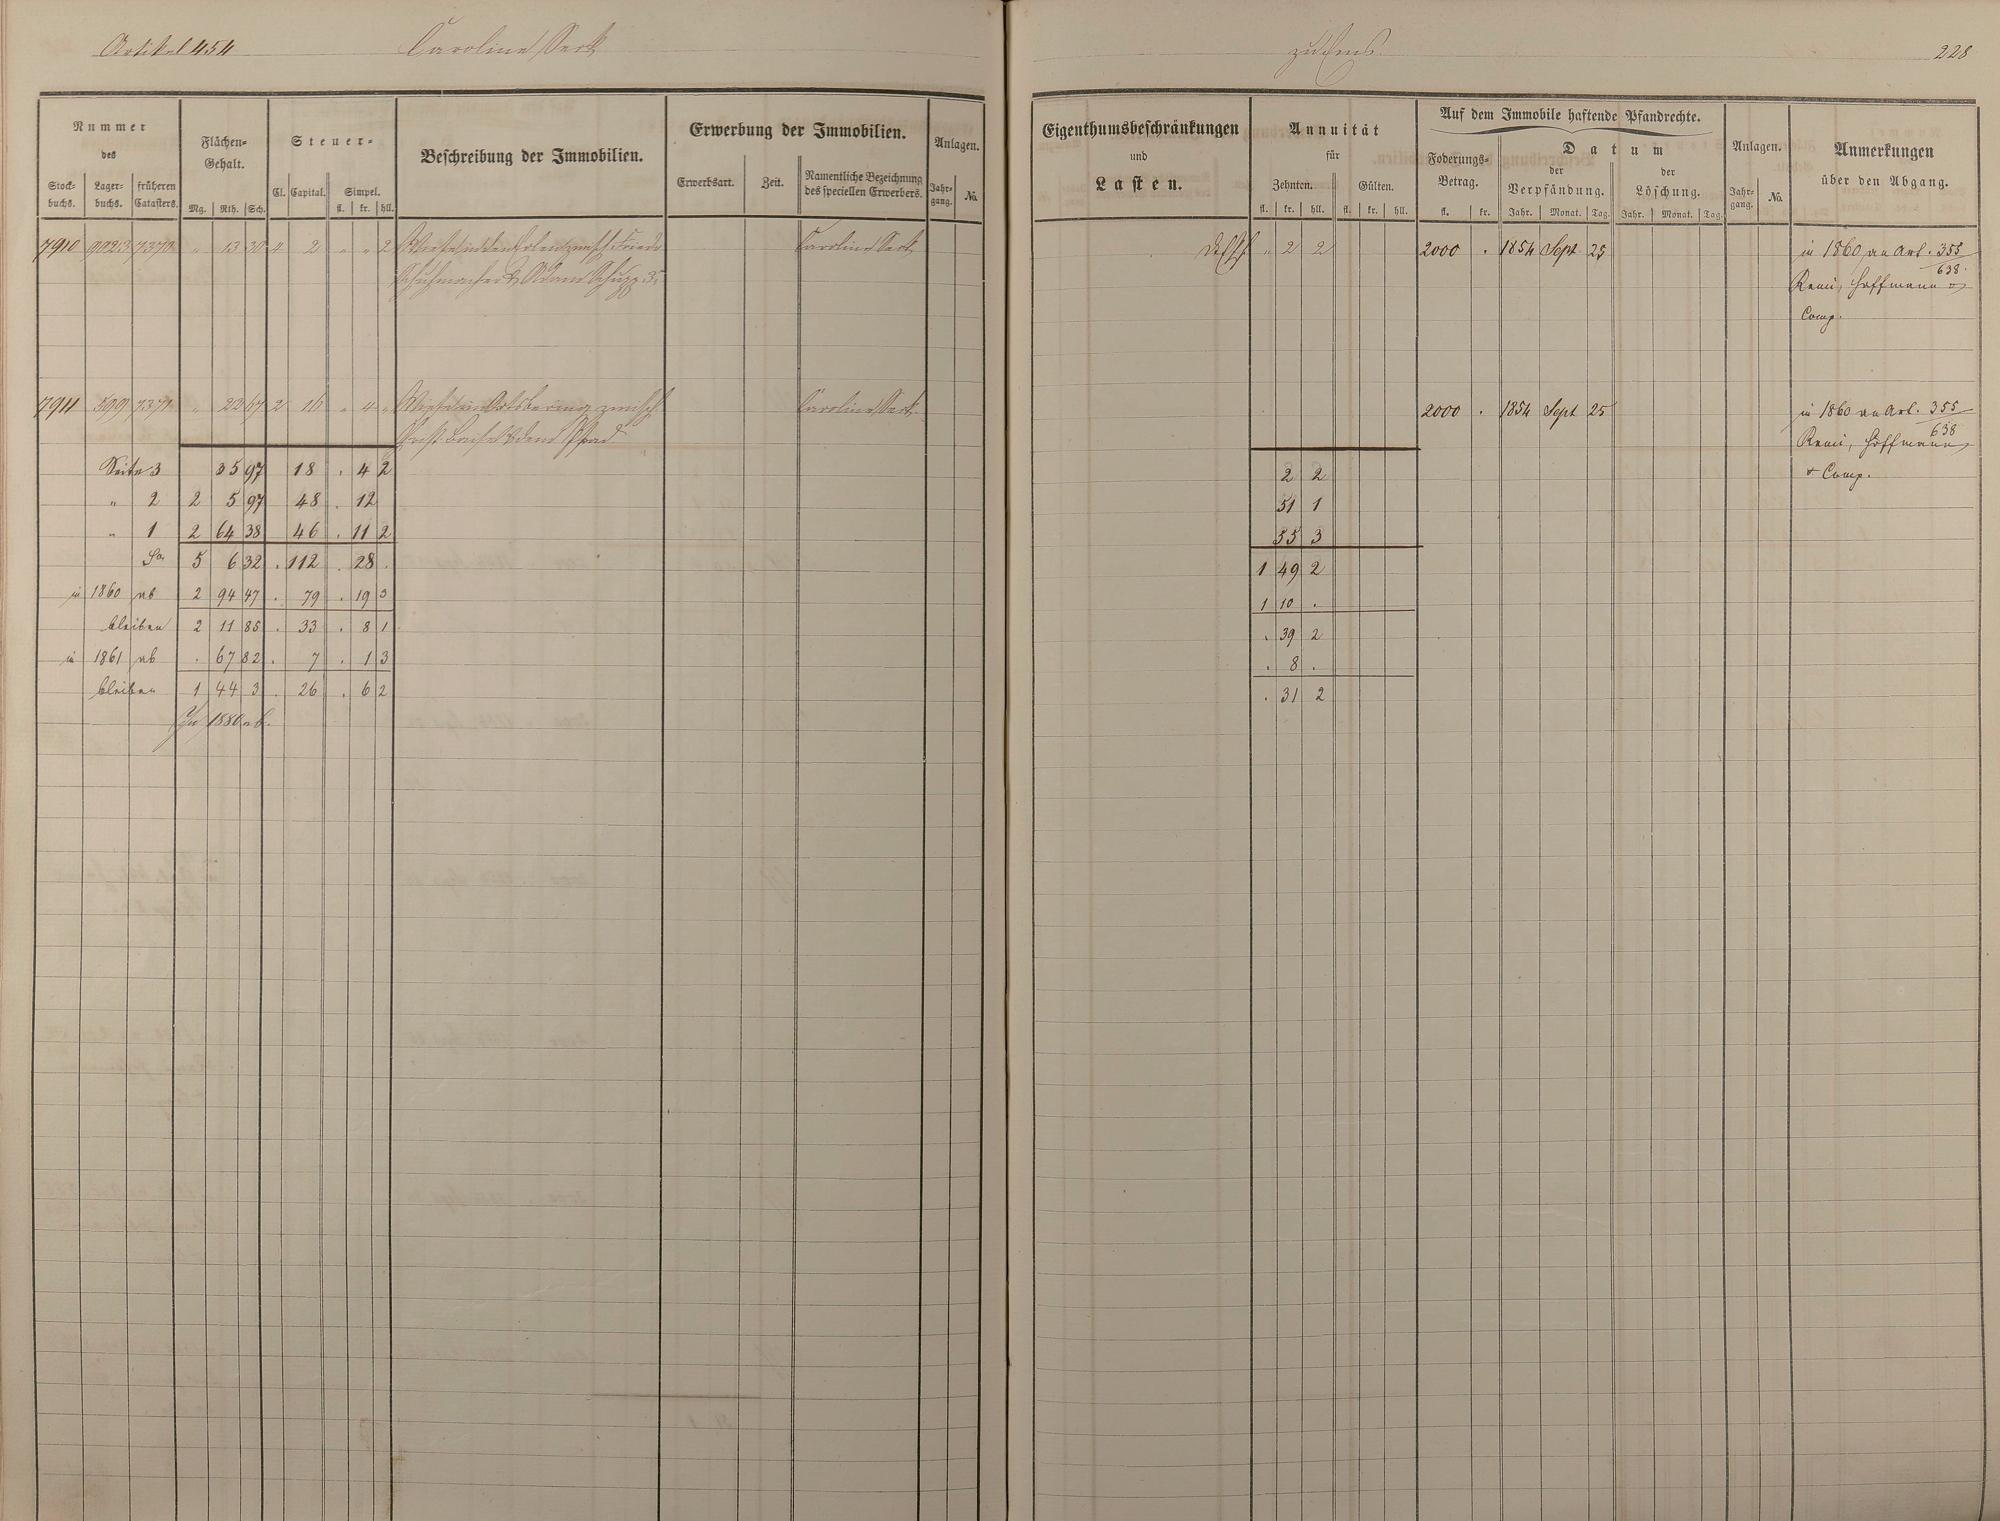 Artikel 454 Caroline Serk
zu Ems 228
Nummer
des
Stock-buchs. Lager-buchs. früheren Catasters.
Flächen-Gehalt.
Mg. Rth. Sch.
Steuer-
Cl. Capital. Simpel.
fl. kr. hll.
Beschreibung der Immobilien.
Erwerbung der Immobilien.
Erwerbsart. Zeit. Namentliche Bezeichnung des speciellen Erwerbers.
Anlagen.
Jahr-gang. No.
Eigenthumsbeschränkungen
und
Lasten.
Annuität
für
Zehnten. Gülten.
fl. kr. hll. fl. kr. hll.
Auf dem Immobile haftende Pfandrechte.
Foderungs-Betrag.
fl. kr.
Datum
der Verpfändung. der Löschung.
Jahr. Monat. Tag. Jahr. Monat. Tag.
Anlagen.
Jahr-gang. No.
Anmerkungen
über den Abgang.
7910 9023 7370 " 13 30 4 2 " " 2 Wiese in den Erlen zwisch. Friedr. Caroline Serk " 2 2 2000 . 1854 Sept 25 in 1860 an Art. 355/638
Schuhmacher & Adam Schupp 3r Remi, Hoffmann &
Comp.
7911 599 7371 " 22 67 2 16 " 4 " Wiese im Ortsbering zwisch. Caroline Serk 2000 . 1854 Sept 25 in 1860 an Art. 355/638
& dem Pfad Remi, Hoffmann
Seite 3 35 97 18 . 4 2 2 2 & Comp.
" 2 2 5 97 48 . 12 51 1
" 1 2 64 38 46 . 11 2 55 3
Sa. 5 6 32 . 112 . 28 . 1 49 2
in 1860 ab 2 94 47 . 79 . 19 3 1 10 .
bleiben 2 11 85 . 33 . 8 1 . 39 2
in 1861 ab . 67 82 . 7 . 1 3 . 8 .
bleiben 1 44 3 . 26 . 6 2 . 31 2
In 1880 ab.